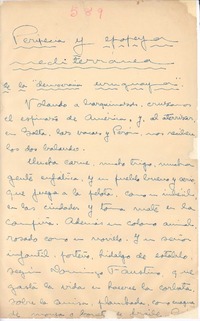 589
Peripecia y epopeya
mediterránea
De la "democracia uruguaya".
Volando a barquinazos, cruzamos
el espinazo de América, y, al aterrizar,
en Salta, las vacas y Perón, nos reciben
los dos balando.
Mucha carne, mucho trigo, mucha
gente enfática, y un pueblo bueno y serio
que juega a la pelota, como
en las ciudades y toma mate en la
campiña. Además un coloso animal
rosado como un novillo. Y un señor
infantil, porteño, hidalgo de establo,
según Domingo Faustino, que
gasta la vida en hacerse la corbata
sobre la camisa, planchada, con